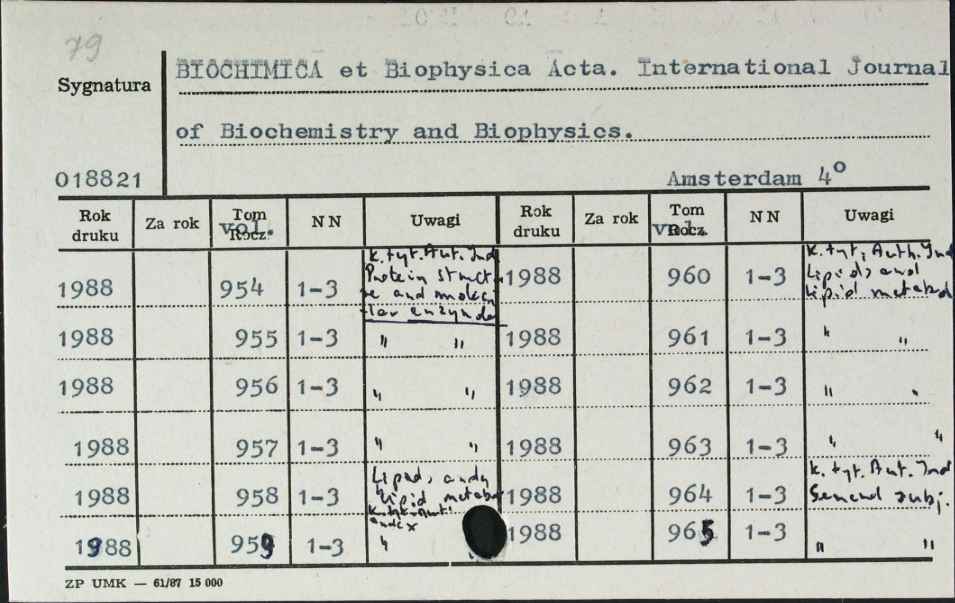 79
Sygnatura
BIOCHIMICA et Biophysica Acta. International Journal
of Biochemistry and Biophysics.
018821
Amsterdam 4°
Rok druku Za rok Tom Rocz. vol. NN Uwagi Rok druku Za rok Tom Rocz. vol. NN Uwagi
1988 954 1-3 k. tyt. Aut. Ind Protein struct 1988 960 1-3 k. tyt, Auth. Ind Lipids and Lipid metabol
1988 955 1-3 " " 1988 961 1-3 " "
1988 956 1-3 " " 1988 962 1-3 " "
1988 957 1-3 " " 1988 963 1-3 " "
1988 958 1-3 Lipid metabo 1988 964 1-3 k. tyt. Aut. Ind General subj.
1988 959 1-3 " 1988 965 " "
ZP UMK — 61/87 15 000